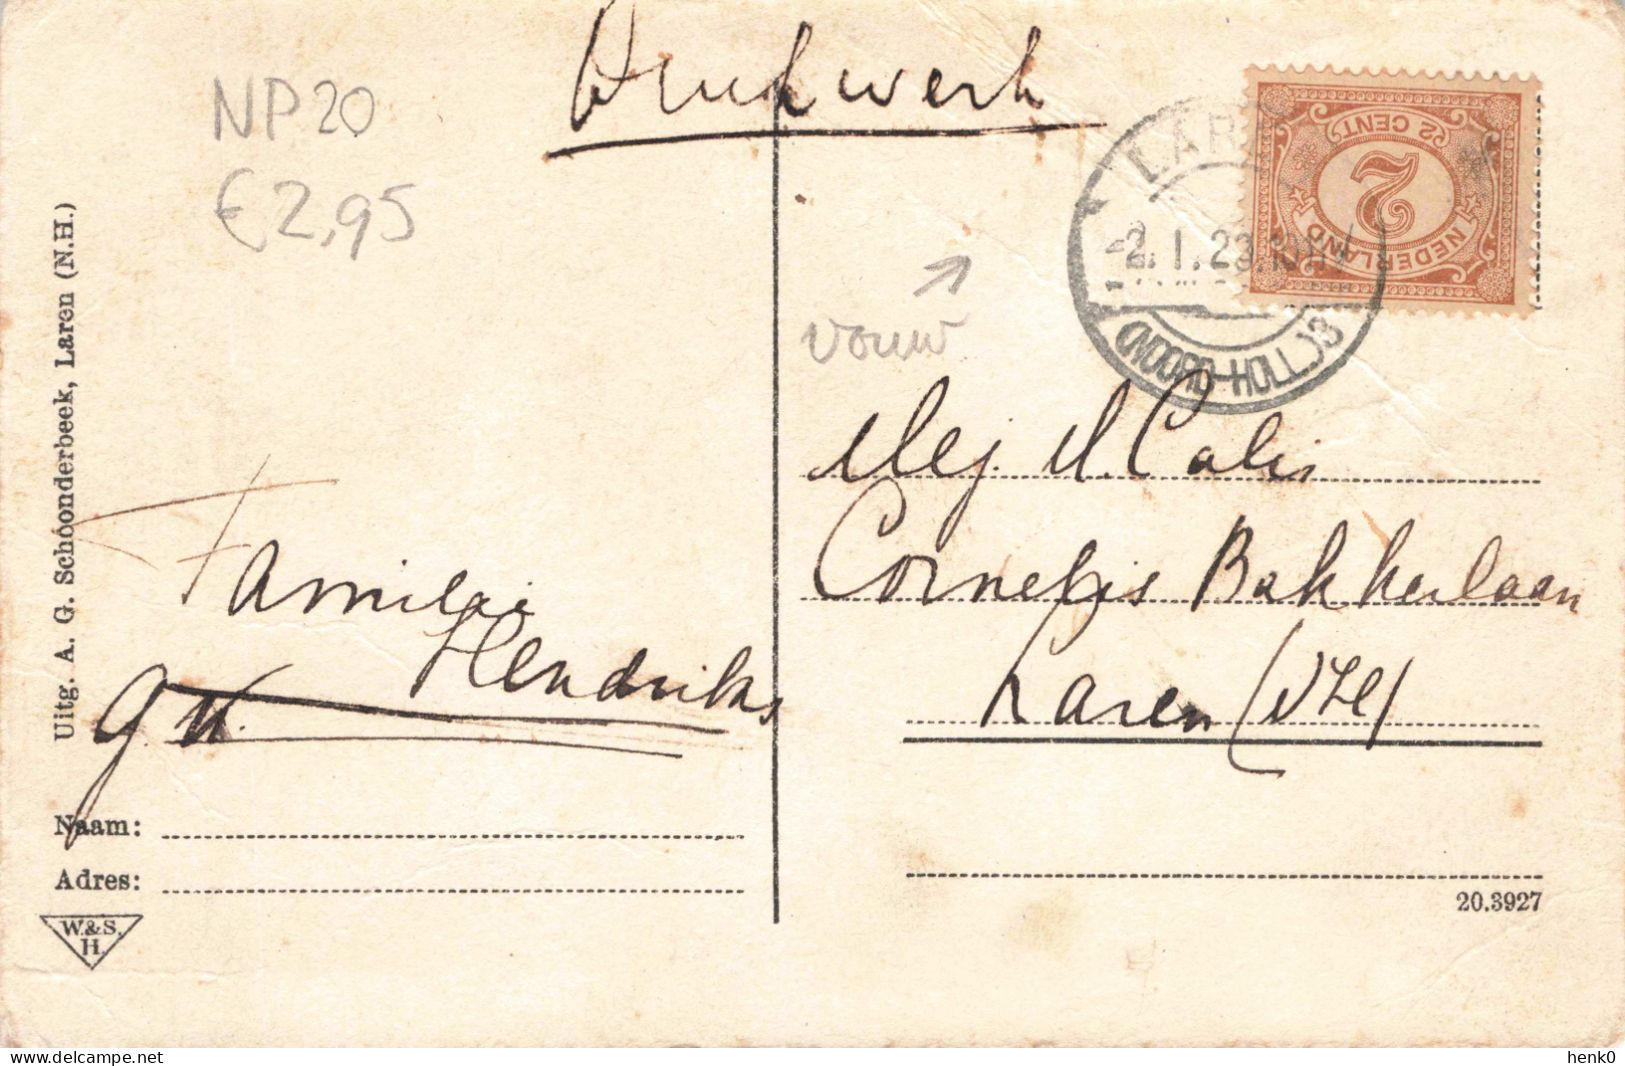 Drukwerk
NP 20
€ 2,95
vouw
LAREN
-2.1.23.
(NOORD-HOLL.)
2 CENT
2
NEDERLAND
Mej. M. Calis
Cornelis Bakkerlaan
Laren (NH)
Familie
Hendriks
Uitg. A. G. Schoonderbeek, Laren (N.H.)
Naam:
Adres:
W.&S.
H.
20.3927
https://www.delcampe.net
henk0